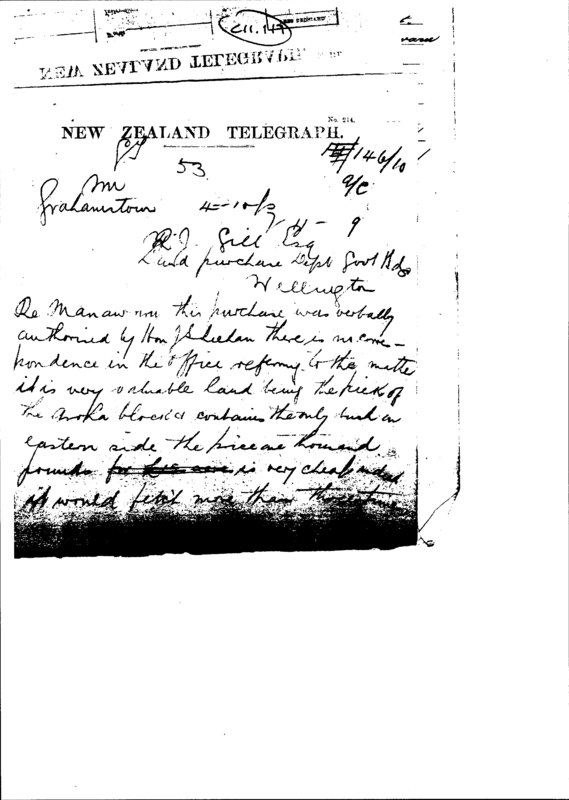 C11.147
NEW ZEALAND TELEGRAPH
No. 214.
NEW ZEALAND TELEGRAPH.
53
146/10
Grahamstown 4-10
9
R.J. Gill Esq
Land purchase Dept Govt Bdgs
Wellington
Re Manawaru this purchase was verbally
authorised by Hon J Sheehan there is no corres-
pondence in the Office referring to the matter
it is very valuable land being the pick of
the Aroha block & contains the only bush on
eastern side the price one thousand
pounds is very cheap indeed
it would fetch more than three times